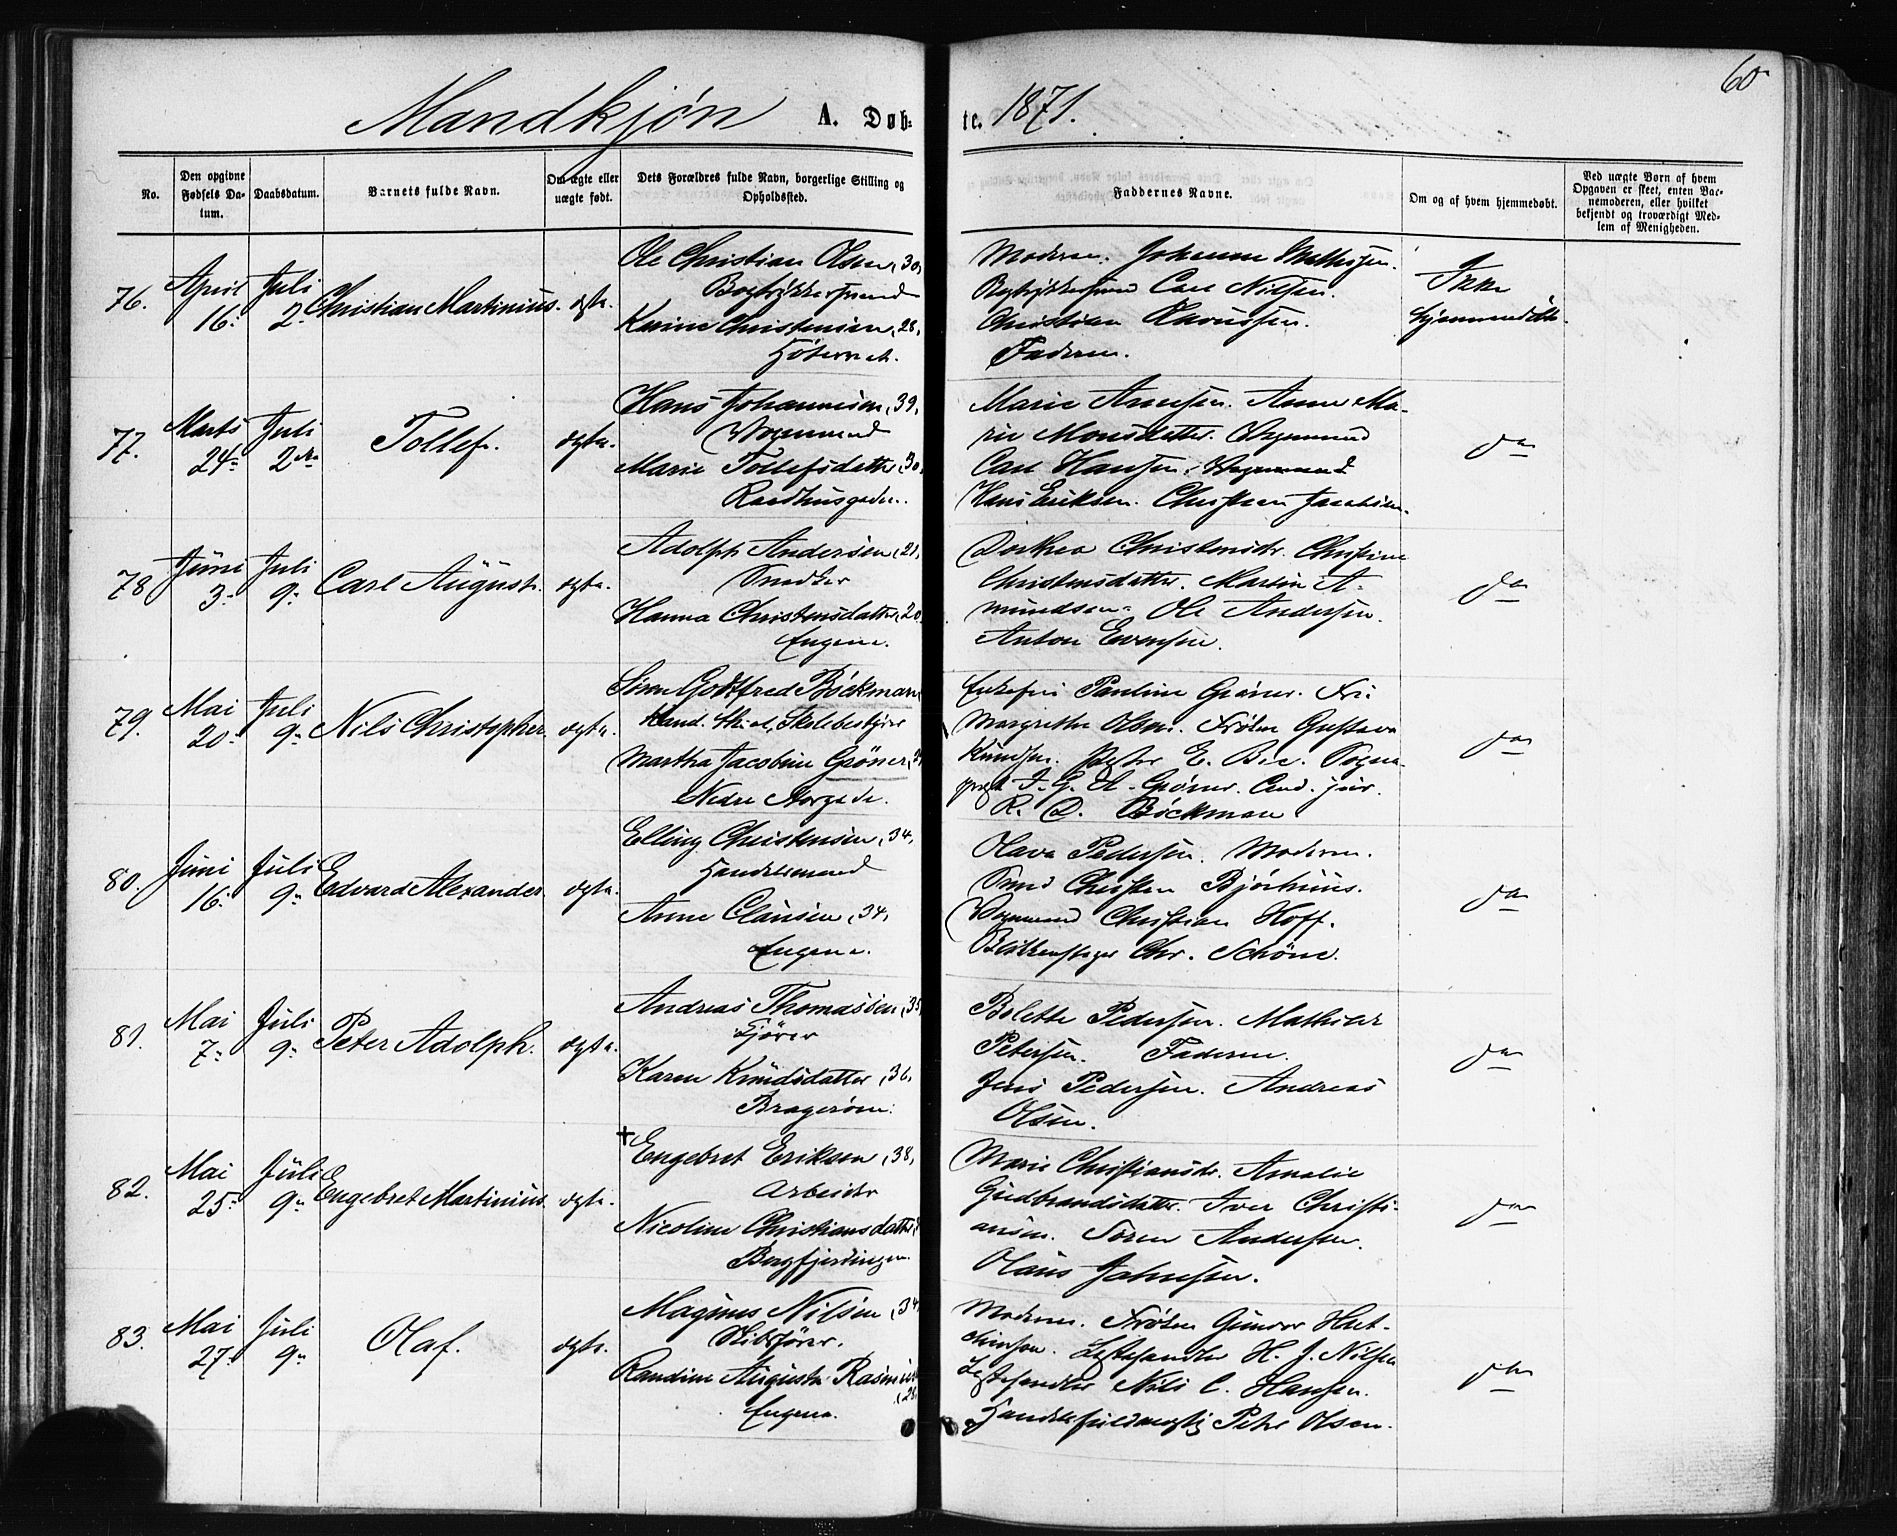 60
Mandkjøn A. Døb-
te. 1871.
No.
Den opgivne
Fødsels Da-
tum.
Daabsdatum.
Barnets fulde Navn.
Om ægte eller
uægte født.
Dets Forældres fulde Navn, borgerlige Stilling og
Opholdssted.
Faddernes Navne.
Om og af hvem hjemmedøbt.
Ved uægte Børn af hvem
Opgaven er skeet, enten Bar-
nemoderen, eller hvilket
bekjendt og troværdigt Med-
lem af Menigheden.
76.
April
16.
Juli
2.
Christian Martinius.
ægte.
Ole Christian Olsen, 30,
Bogtrykkersvend
Karine Christensen, 28,
Moderen. Johanne Mathisen.
Bogtrykkersvend Carl Nilsen.
Christian
Faderen.
Ikke
hjemmedøbt.
77.
Marts
24.
Juli
2.
Tollef.
ægte.
Hans Johannesen, 39,
Vognmand
Marie Tollefsdatter, 30,
Raadhusgaden.
Marie Anesen. Anne Ma-
rie Monsdatter. Vognmand
Carl Hansen. Vognmand
Hans Eriksen. Christian Jacobsen.
do
78
Juni
3.
Juli
9.
Carl August.
ægte.
Adolph Andersen, 21,
Snedker
Hanna Christensdatter, 20
Engene.
Dorthea Christensdr. Christine
Christensdatter. Martin A-
mundsen. Ole Andersen.
Anton Evensen.
do
79.
Mai
20.
Juli
9.
Nils Christopher
ægte.
Søren Godtfred Böckman
Kand. theol, Skolebestyrer
Martha Jacobine Grøner,
Nedre Storgade.
Enkefru Pauline Grøner. Fru
Margrethe Olsen. Frøken Gustava
Knudsen. E. Bie. Sogne-
prest J. G. A. Grøner. Cand. jur.
R. D. Böckman
do
80.
Juni
16.
Juli
9.
Edvard Alexander.
ægte.
Elling Christensen, 34,
Handelsmand
Anne Clausen, 34,
Engene.
Olava Pedersen. Moderen.
Smed Christen Bjørhuus.
Vognmand Christian Hoff.
Blikkenslager Chr. Schöne.
do
81.
Mai
7.
Juli
9.
Peter Adolph.
ægte.
Andreas Thomassen, 35
Kjører
Karen Knudsdatter, 36,
Bragerøen.
Bolette Pedersen. Mathias
Petersen. Faderen.
Jens Pedersen. Andreas
Olsen.
do
82.
Mai
25.
Juli
9.
Engebret Martinius.
ægte.
+ Engebret Eriksen, 38,
Arbeider
Nicoline Christiansdatter,
Bergfjerdingen.
Marie Christiansdr. Amalie
Gudbrandsdatter. Iver Christi-
ansen. Søren Andersen.
Olaus Johnsen.
do
83.
Mai
27.
Juli
9.
Olaf.
ægte.
Magnus Nilsen, 34,
Skibsfører.
Randine Augusta Rasmussen
28.
Engene.
Moderen. Frøken Gunvor Hut-
chinson. Læstehandler H. J. Nilsen
Læstehandler Nils C. Hansen.
Handelsfuldmægtig Peter Olsen.
do